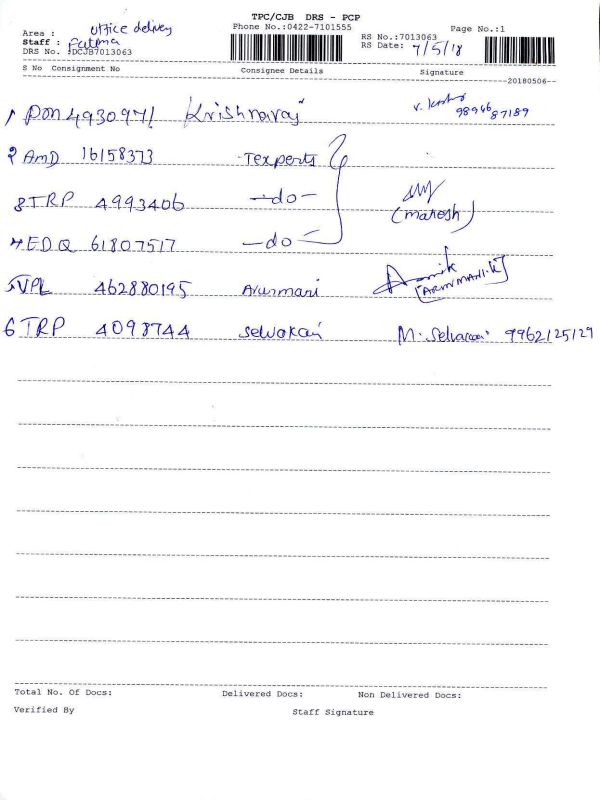 TPC/CJB DRS - PCP
Area : office delivery Phone No.:0422-7101555 Page No.:1
Staff : Fatima RS No.:7013063
DRS No. :DCJB7013063 RS Date: 7/5/18
S No Consignment No Consignee Details Signature
20180506
1 PON 4930971 Krishnaraj 98946 87189
2 AMD 16158373 Texperts
3 TRP 4993406 -do- (Mahesh)
4 EDQ 61807517 -do-
5 VPL 462880195 Arunmani [ARUNMANI.K]
6 TRP 4098744 Selvakani M. 9962125129
Total No. Of Docs: Delivered Docs: Non Delivered Docs:
Verified By Staff Signature